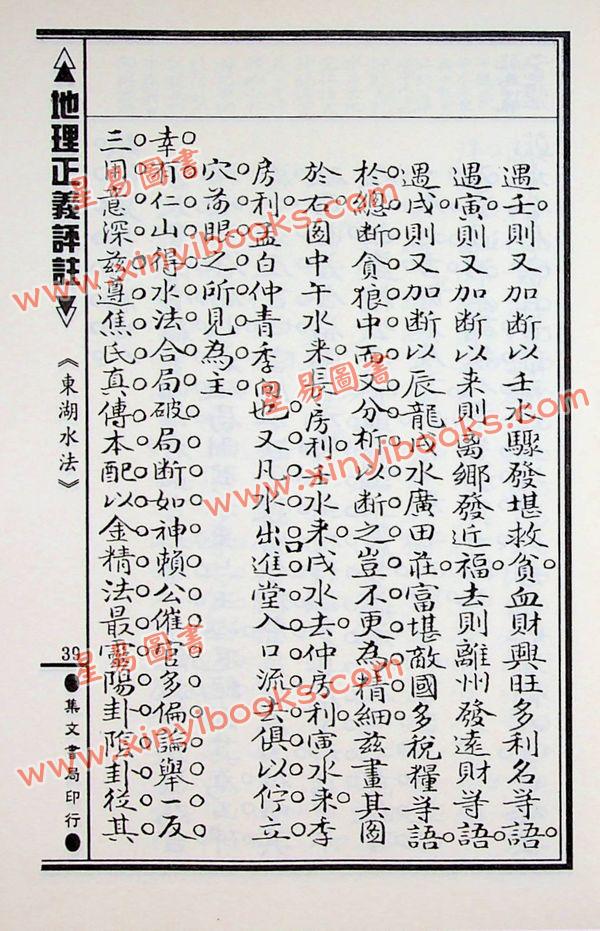 遇壬則又加断以壬水驟發堪救貧血財興旺多利名等語
遇寅則又加断以来則离鄉發近福去則離州發遠財等語
遇戌則又加断以辰龍戌水廣田莊富堪敵國多稅糧等語
於總断貪狼中而又分析以断之豈不更為精細茲畫其圖
於右圖中午水来長房利壬水来戌水去仲房利寅水来季
房利孟白仲青季向也又凡水出進堂入口流去俱以佇立
穴前眼之所見為主
幸有仁山得水法合局破局断如神賴公催官多偏論舉一反
三用意深茲遵焦氏真傳本配以金精法最靈陽卦陰卦從其
地理正義評註
《東湖水法》
39
集文書局印行
星易圖書
www.xinyibooks.com
星易圖書
www.xinyibooks.com
星易圖書
www.xinyibooks.com